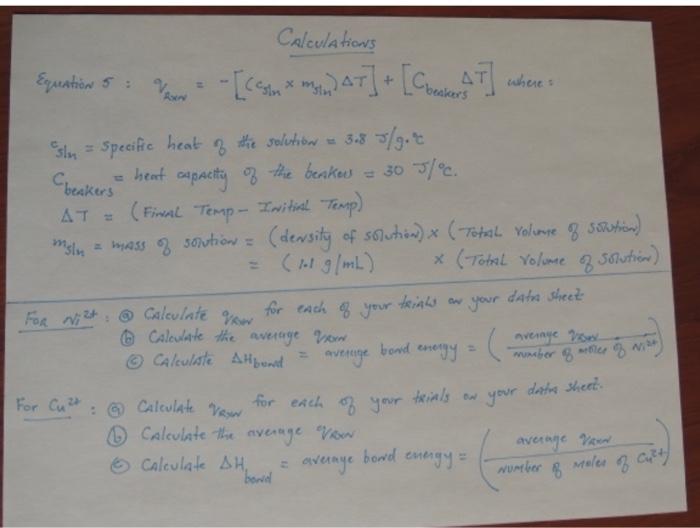 Calculations
Equation 5 : q_RXN = -[(c_sln x m_sln) ΔT] + [C_beakers ΔT] where :
c_sln = specific heat of the solution = 3.8 J/g.°C
C_beakers = heat capacity of the beakers = 30 J/°C.
ΔT = (Final Temp - Initial Temp)
m_sln = mass of solution = (density of solution) x (Total volume of solution)
= (1.1 g/mL) x (Total volume of solution)
For Ni²⁺ : ⓐ Calculate q_RXN for each of your trials on your data sheet
ⓑ Calculate the average q_RXN
ⓒ Calculate ΔH_bond = average bond energy = (average q_RXN / number of moles of Ni²⁺)
For Cu²⁺ : ⓐ Calculate q_RXN for each of your trials on your data sheet.
ⓑ Calculate the average q_RXN
ⓒ Calculate ΔH_bond = average bond energy = (average q_RXN / number of moles of Cu²⁺)